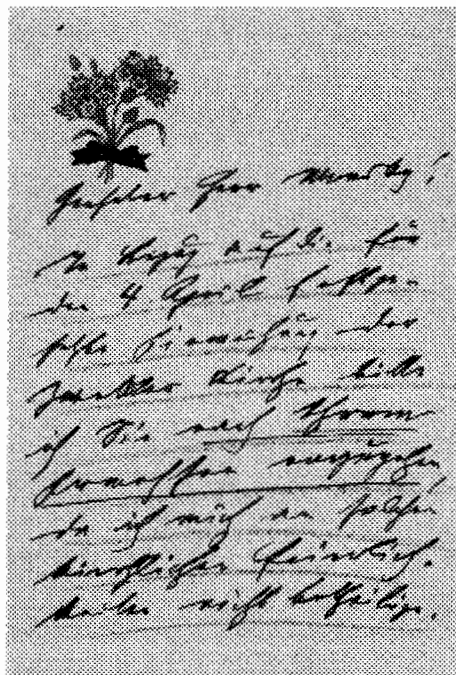 Geehrter Herr
In Bezug auf die für
den 4 April festge-
setzte Einweihung der
Zwettler Kirche bitte
ich Sie nach Ihrem
Ermessen vorzugehen,
da ich mich an solchen
kirchlichen Feierlich-
keiten nicht betheilige.